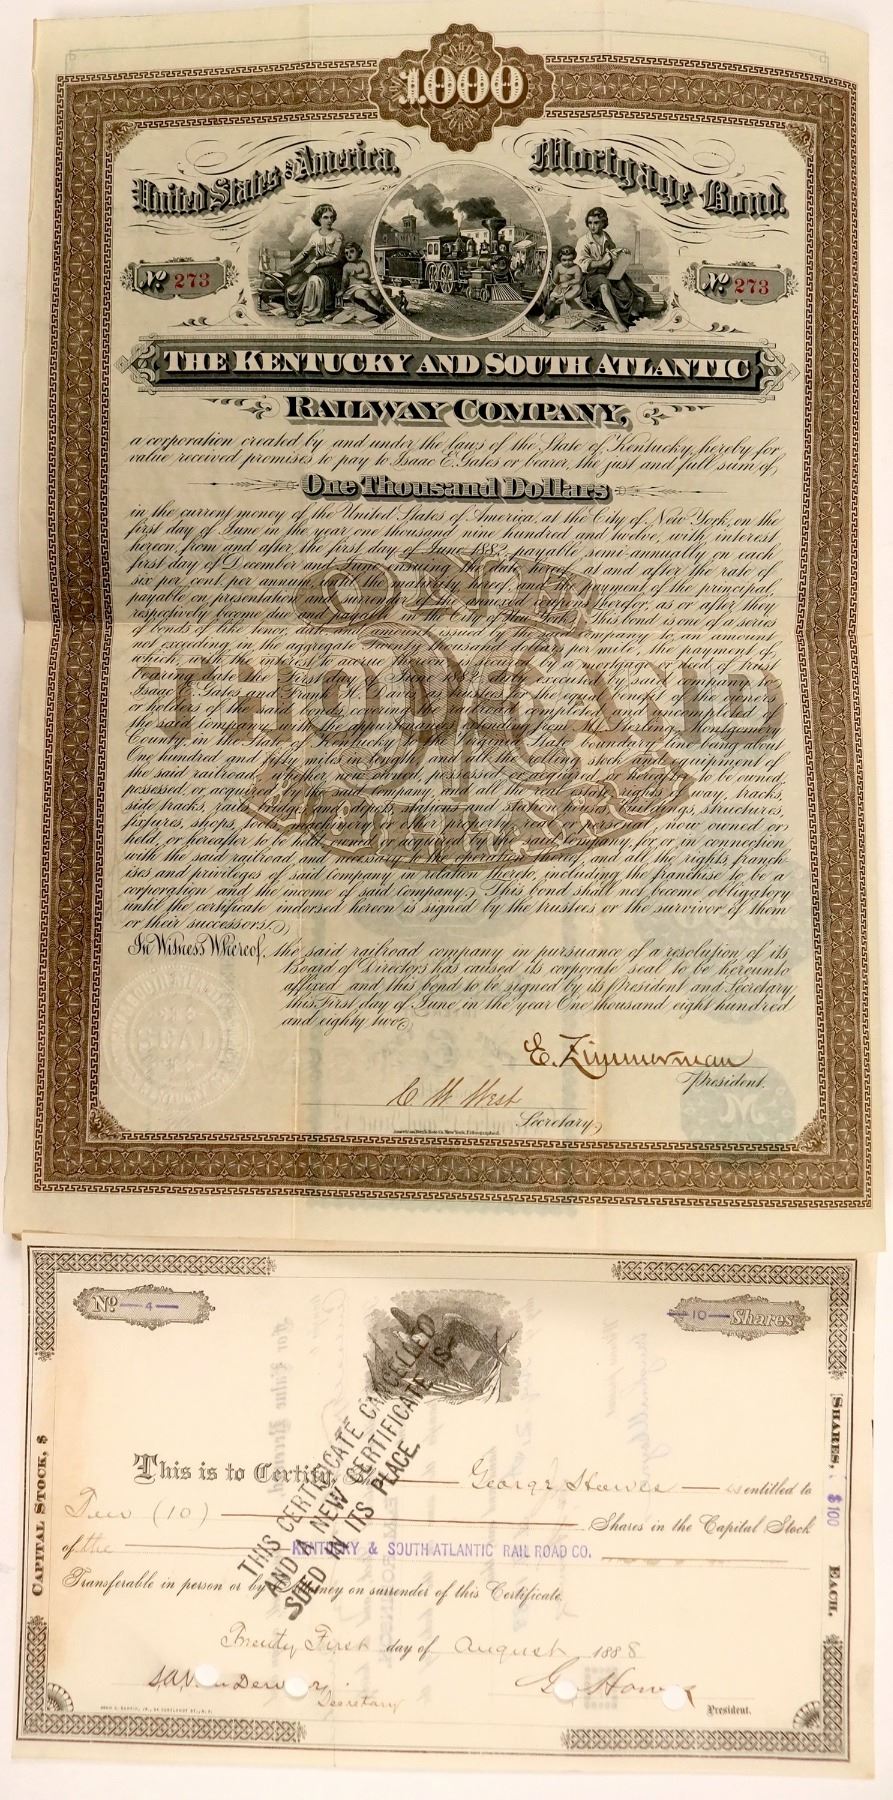 1.000
United States of America,
Mortgage Bond.
No 273
No 273
THE KENTUCKY AND SOUTH ATLANTIC
RAILWAY COMPANY,
a corporation created by and under the laws of the State of Kentucky, hereby for
value received promises to pay to Isaac E. Gates or bearer, the just and full sum of
One Thousand Dollars
in the current money of the United States of America, at the City of New York, on the
first day of June in the year one thousand nine hundred and twelve, with interest
hereon, from and after the first day of June 1882, payable semi-annually on each
first day of December and June ensuing the date hereof, as and after the rate of
six per cent. per annum, until the maturity hereof, and the payment of the principal,
payable on presentation and surrender of the annexed coupons therefor, as or after they
respectively become due and payable in the City of New York. This bond is one of a series
of bonds of like tenor, date and amount, issued by the said Company to an amount
not exceeding in the aggregate Twenty thousand dollars per mile, the payment of
which, with the interest to accrue thereon, is secured by a mortgage or deed of trust
bearing date the First day of June 1882, duly executed by said company to
Isaac E. Gates and Frank H. Davis, as trustees for the equal benefit of the owners
or holders of the said bonds, covering the railroad completed and uncompleted of
the said Company, with the appurtenances extending from Mt. Sterling, Montgomery
County, in the State of Kentucky to the Virginia State boundary line being about
One hundred and fifty miles in length, and all the rolling stock and equipment of
the said railroad, whether now owned, possessed or acquired, or hereafter to be owned,
possessed, or acquired by the said company, and all the real estate, rights of way, tracks,
side tracks, rails, bridges and depots, stations and station houses, buildings, structures,
fixtures, shops, tools, machinery or other property, real or personal, now owned or
held, or hereafter to be held, owned or acquired by the said company, for or in connection
with the said railroad and necessary to the operation thereof, and all the rights, franch-
ises and privileges of said Company in relation thereto, including the franchise to be a
corporation and the income of said Company. This bond shall not become obligatory
until the certificate indorsed hereon is signed by the trustees or the survivor of them
or their successors.
In Witness Whereof, the said railroad company in pursuance of a resolution of its
Board of Directors has caused its corporate seal to be hereunto
affixed and this bond to be signed by its President and Secretary
this First day of June in the year One thousand eight hundred
and eighty two
ONE
THOUSAND
DOLLARS
SEAL
E. Zimmerman
President.
C W West
Secretary
American Bank Note Co. New York, Lithographed.
No 4
10 Shares
CAPITAL STOCK, $
SHARES, $100 EACH.
This is to Certify, that George Hawes is entitled to
Ten (10) Shares in the Capital Stock
of the KENTUCKY & SOUTH ATLANTIC RAIL ROAD CO.
Transferable in person or by Attorney on surrender of this Certificate.
Twenty First day of August 1888
THIS CERTIFICATE CANCELLED
AND A NEW CERTIFICATE IS-
SUED IN ITS PLACE.
Secretary
G. Hawes
President.